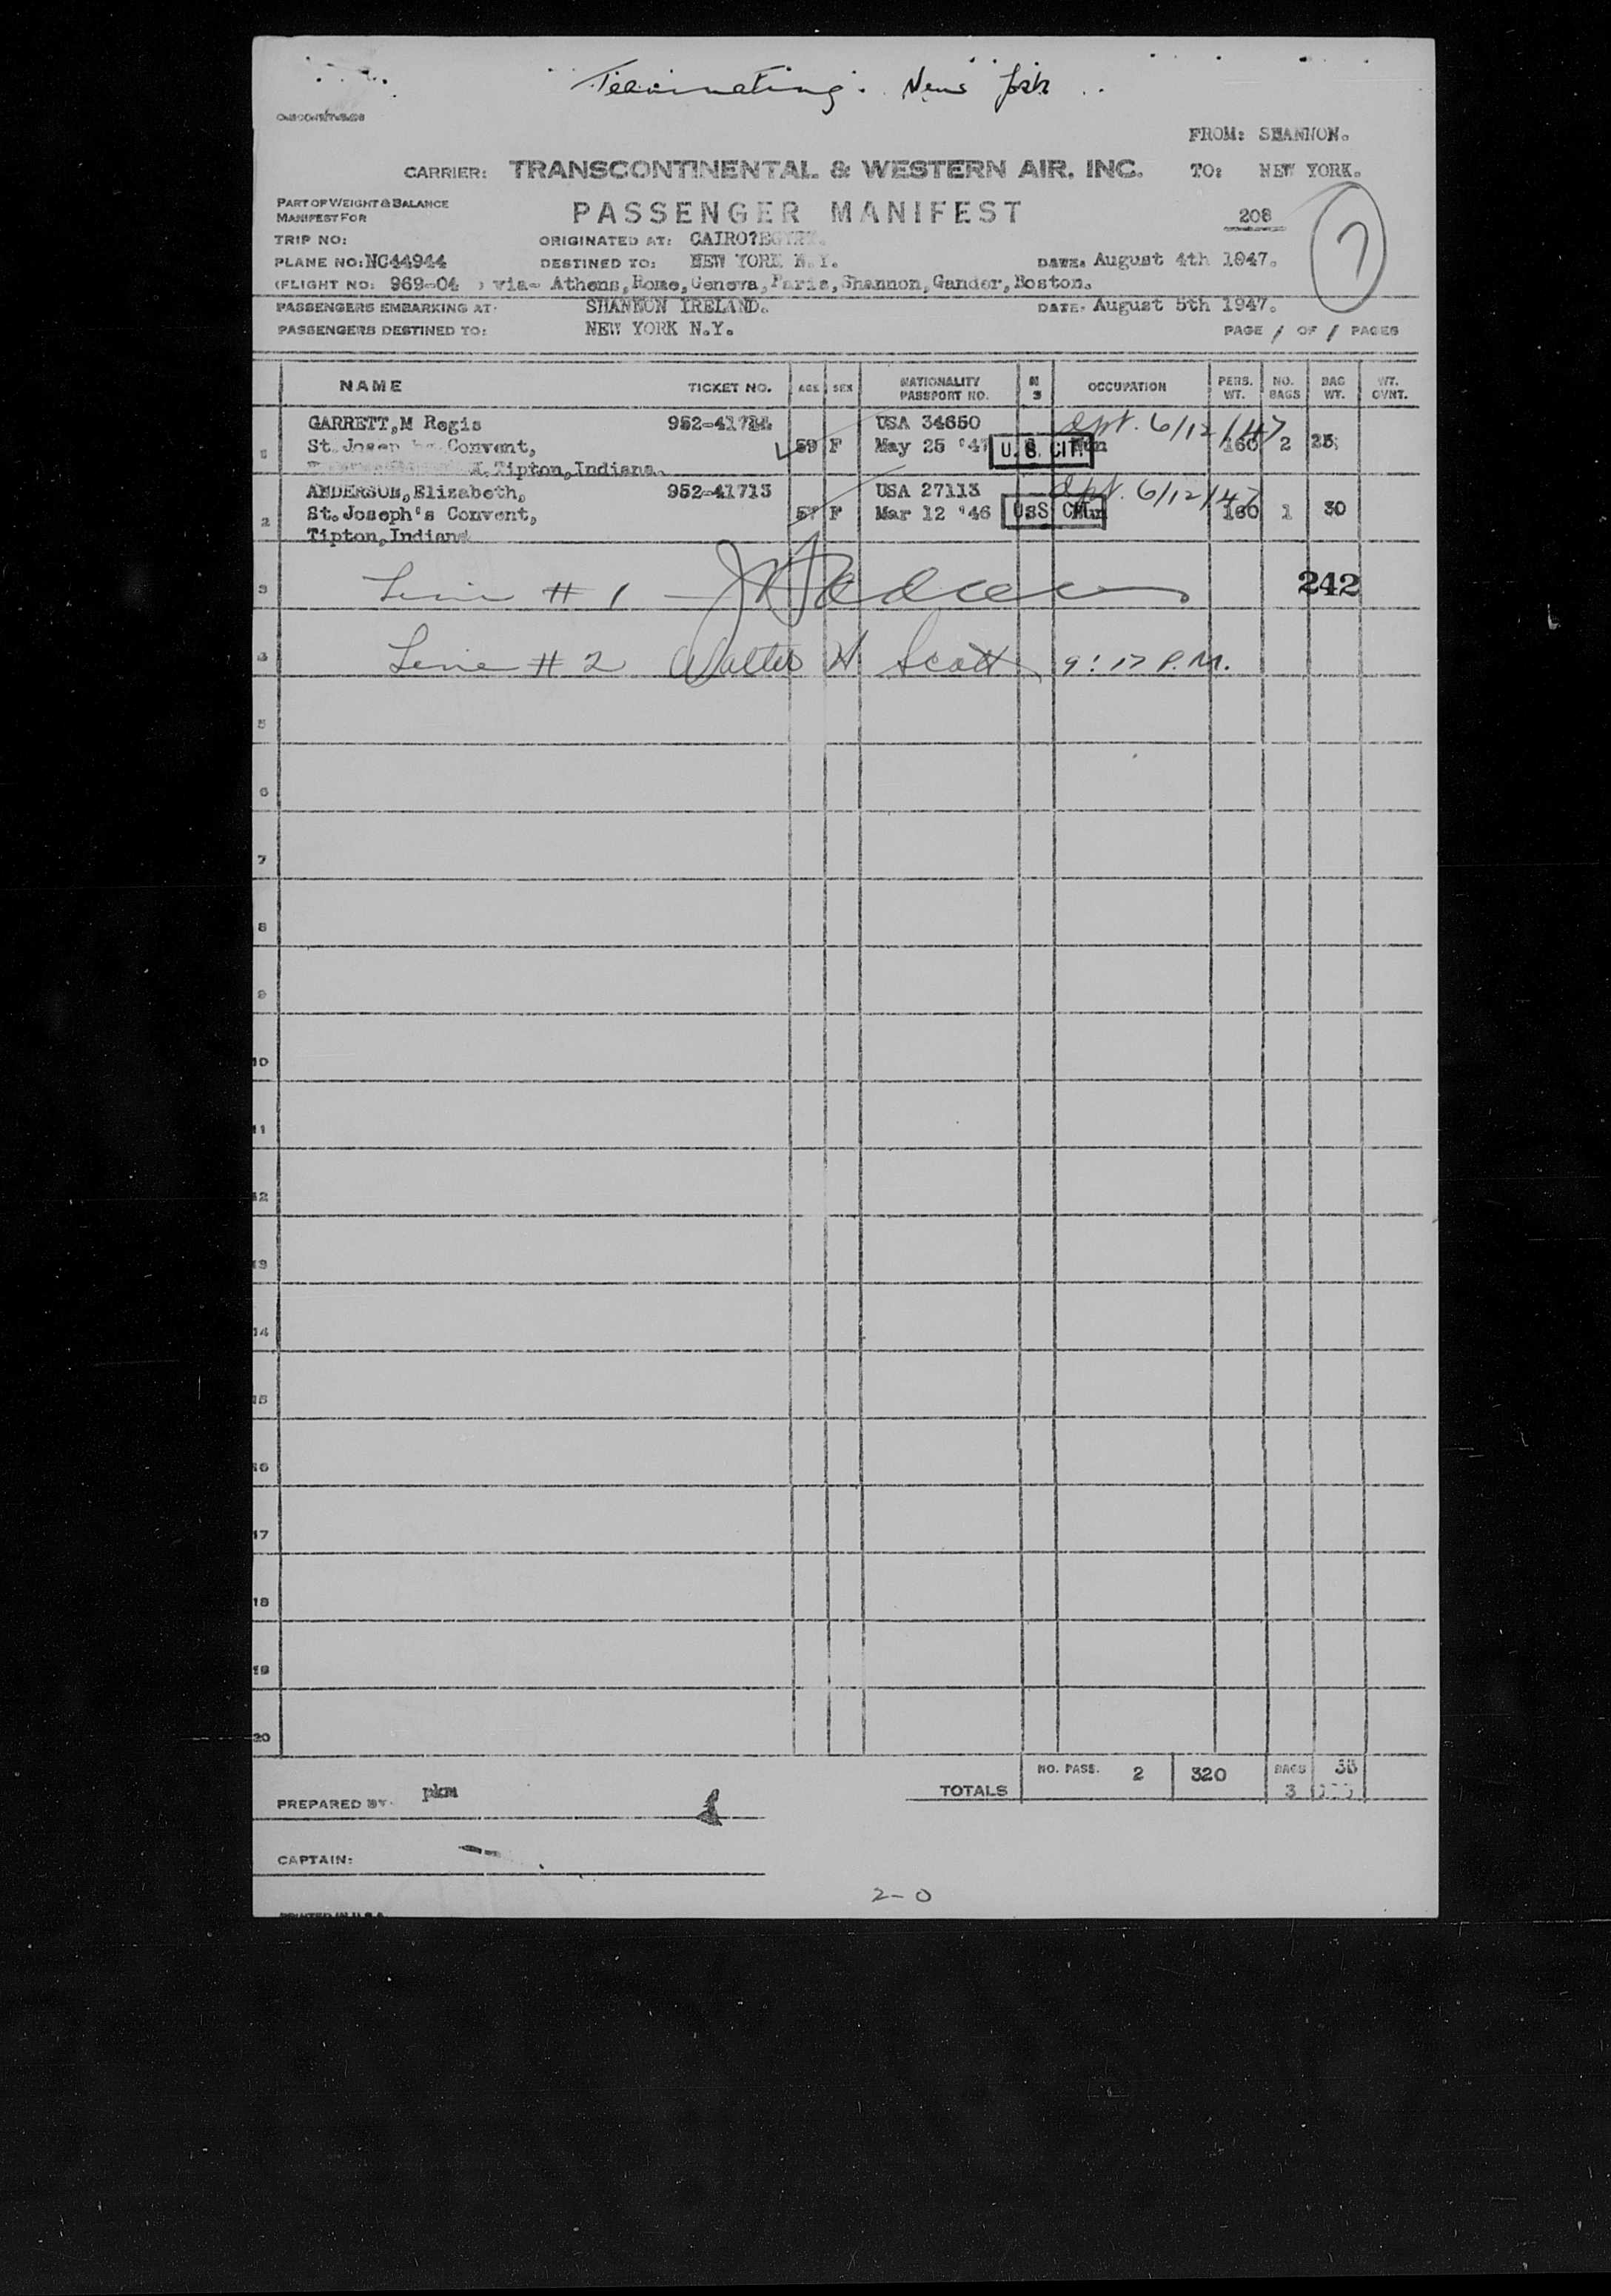 Terminating: New York
FROM: SHANNON.
CARRIER: TRANSCONTINENTAL & WESTERN AIR, INC. TO: NEW YORK.
PART OF WEIGHT & BALANCE
MANIFEST FOR
PASSENGER MANIFEST 208 7
TRIP NO: ORIGINATED AT: CAIRO?EGYPT.
PLANE NO: NC44944 DESTINED TO: NEW YORK N.Y. DATE. August 4th 1947.
(FLIGHT NO: 969-04 ) via- Athens,Rome,Geneva,Paris,Shannon,Gander,Boston.
PASSENGERS EMBARKING AT: SHANNON IRELAND. DATE. August 5th 1947.
PASSENGERS DESTINED TO: NEW YORK N.Y. PAGE 1 OF 1 PAGES
NAME TICKET NO. AGE SEX NATIONALITY PASSPORT NO. M S OCCUPATION PERS. WT. NO. BAGS BAG WT. WT. OVNT.
GARRETT,M Regis USA 34650 dpt. 6/12/47
1 St. Convent, 59 F May 25 '47 U. S. CIT. Nun 160 2
Tipton,Indiana.
ANDERSON,Elizabeth, 952-41713 USA 27113 dpt. 6/12/47
2 St.Joseph's Convent, 57 F Mar 12 '46 S U. S. CIT. Nun 160 1 30
Tipton,Indiana
3 Line # 1 — 242
4 Line # 2 Walter H. Scott 9:17 P.M.
5
6
7
8
9
10
11
12
13
14
15
16
17
18
19
20
TOTALS NO. PASS. 2 320 BAGS 3
PREPARED BY: pkm
CAPTAIN:
2-0
PRINTED IN U.S.A.